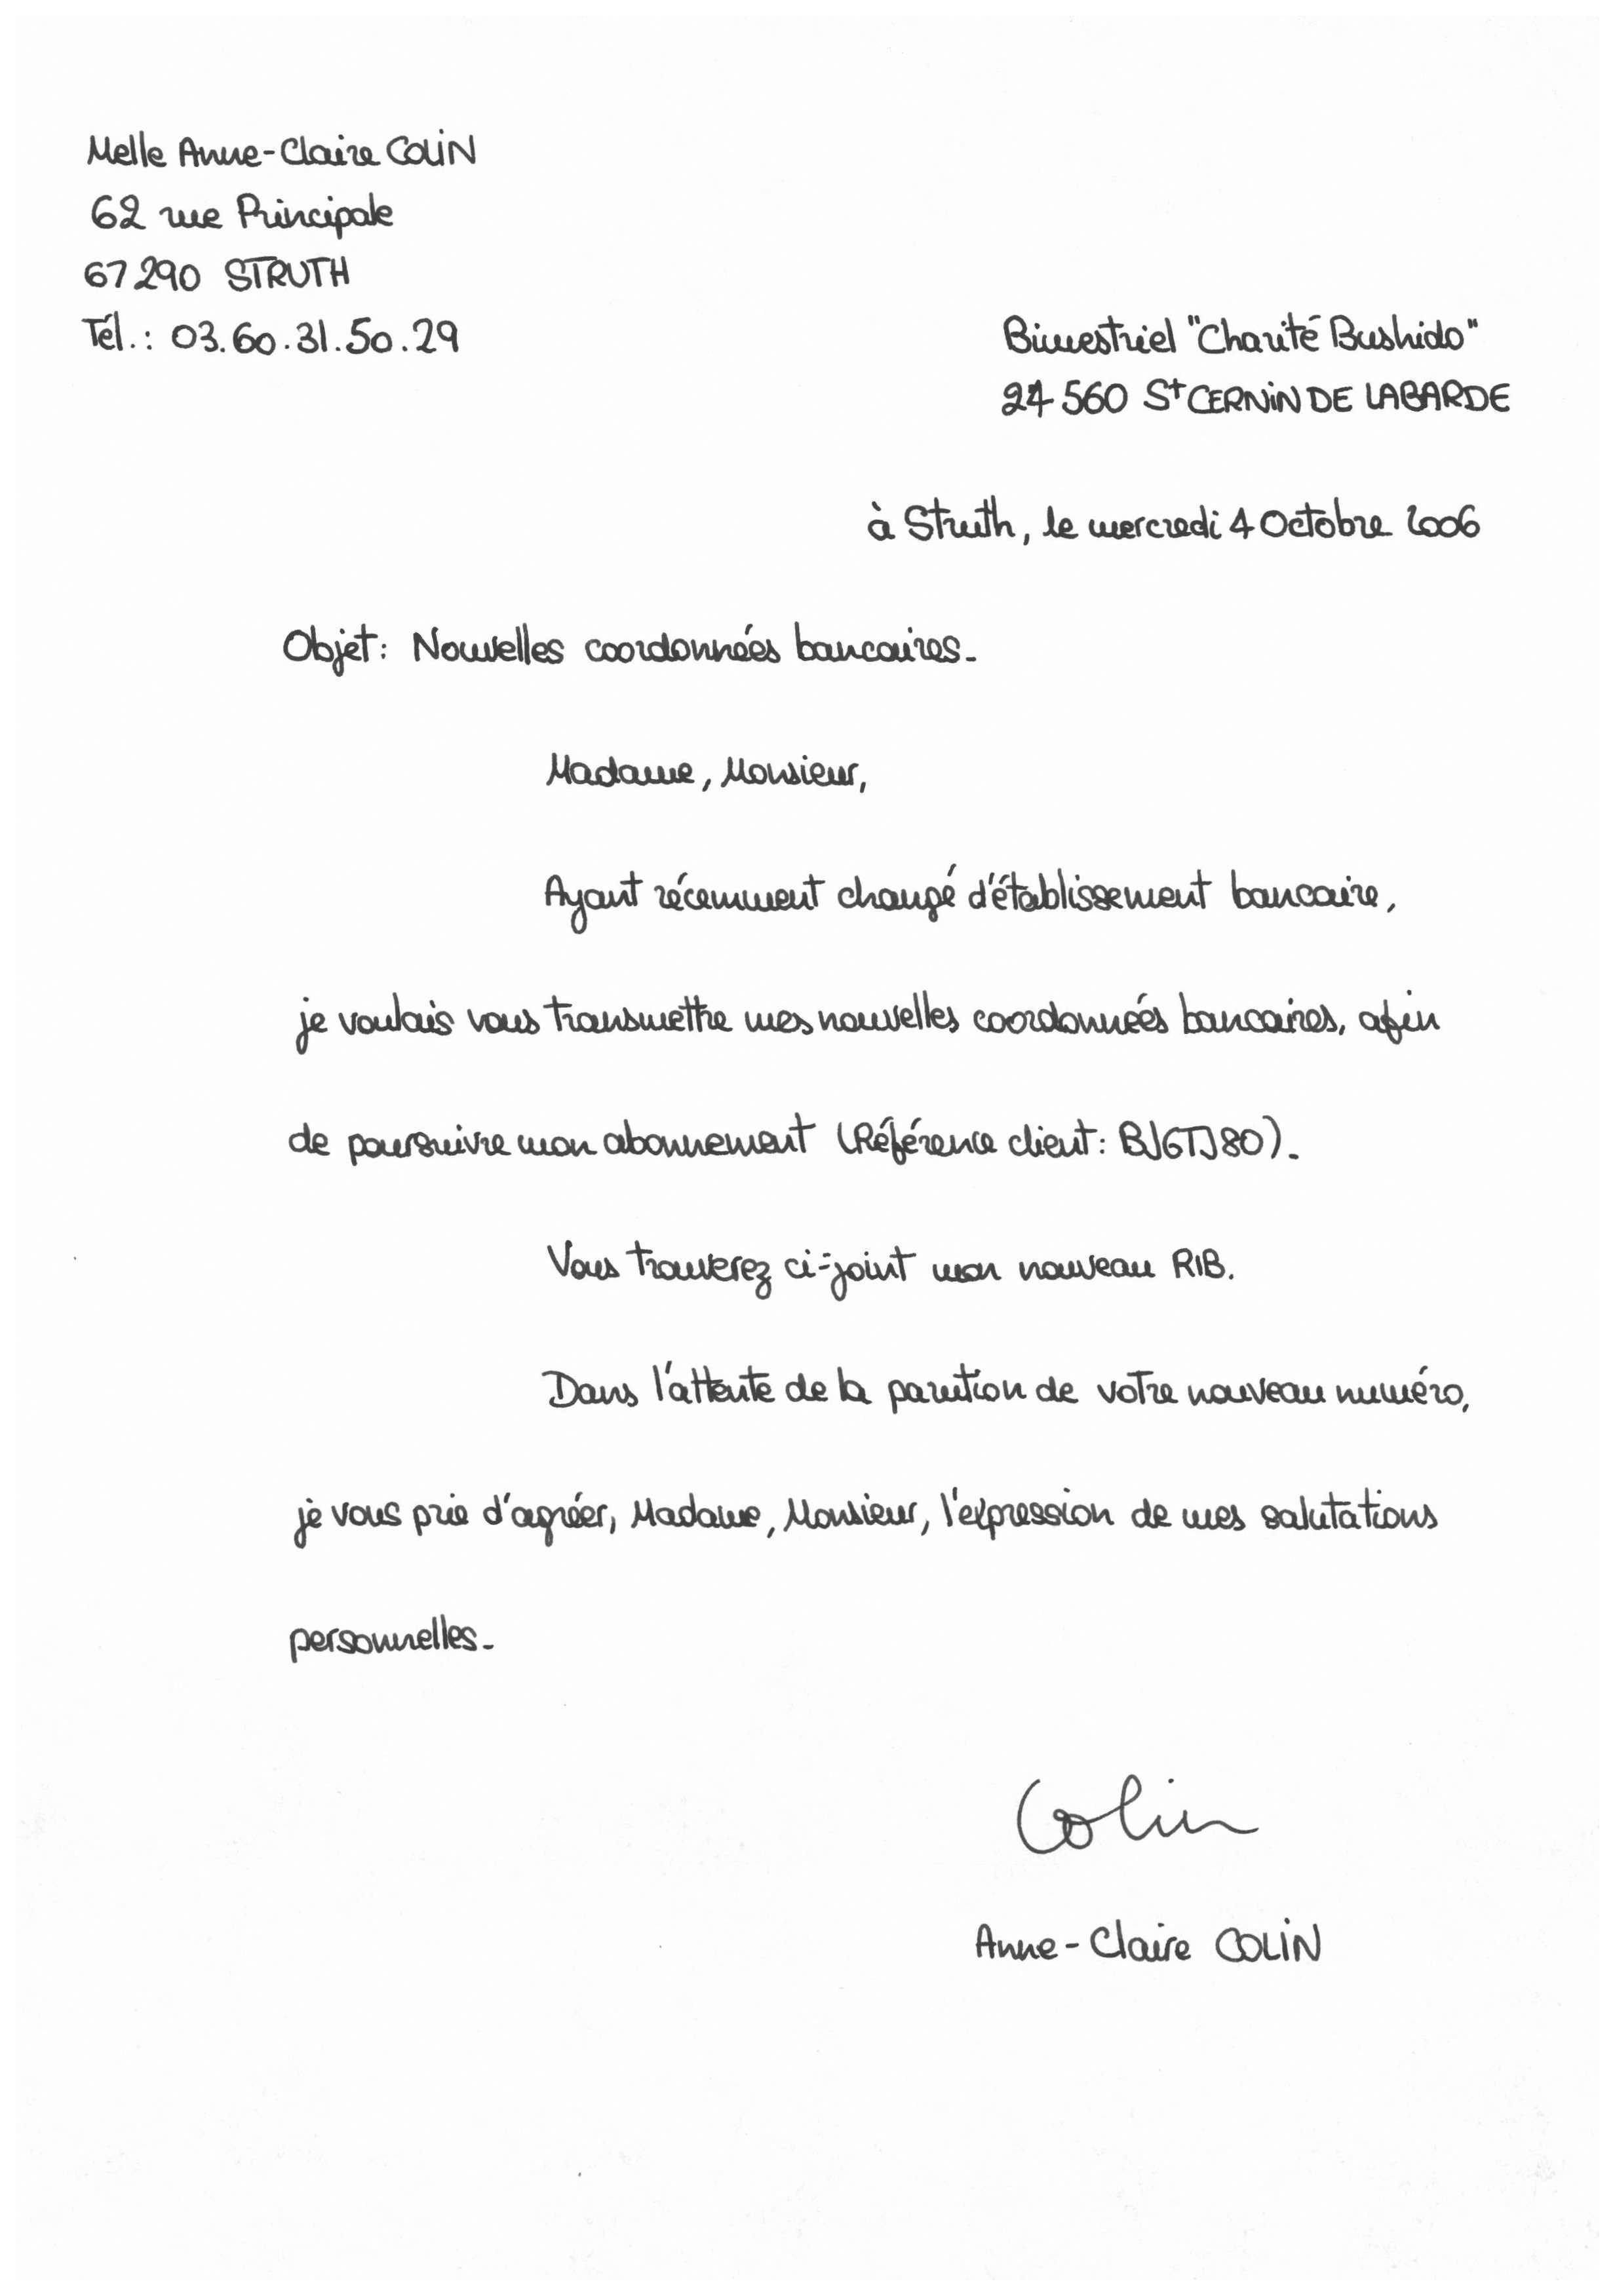 Melle Anne-Claire COLIN
62 rue Principale
67290 STRUTH
Tél.: 03.60.31.50.29
Bimestriel "Charité Bushido"
24 560 St CERNIN DE LABARDE
à Struth, le mercredi 4 Octobre 2006
Objet: Nouvelles coordonnées bancaires.
Madame, Monsieur,
Ayant récemment changé d'établissement bancaire,
je voulais vous transmettre mes nouvelles coordonnées bancaires, afin
de poursuivre mon abonnement (Référence client: BJGTJ80).
Vous trouverez ci-joint mon nouveau RIB.
Dans l'attente de la parution de votre nouveau numéro,
je vous prie d'agréer, Madame, Monsieur, l'expression de mes salutations
personnelles.
Colin
Anne-Claire COLIN